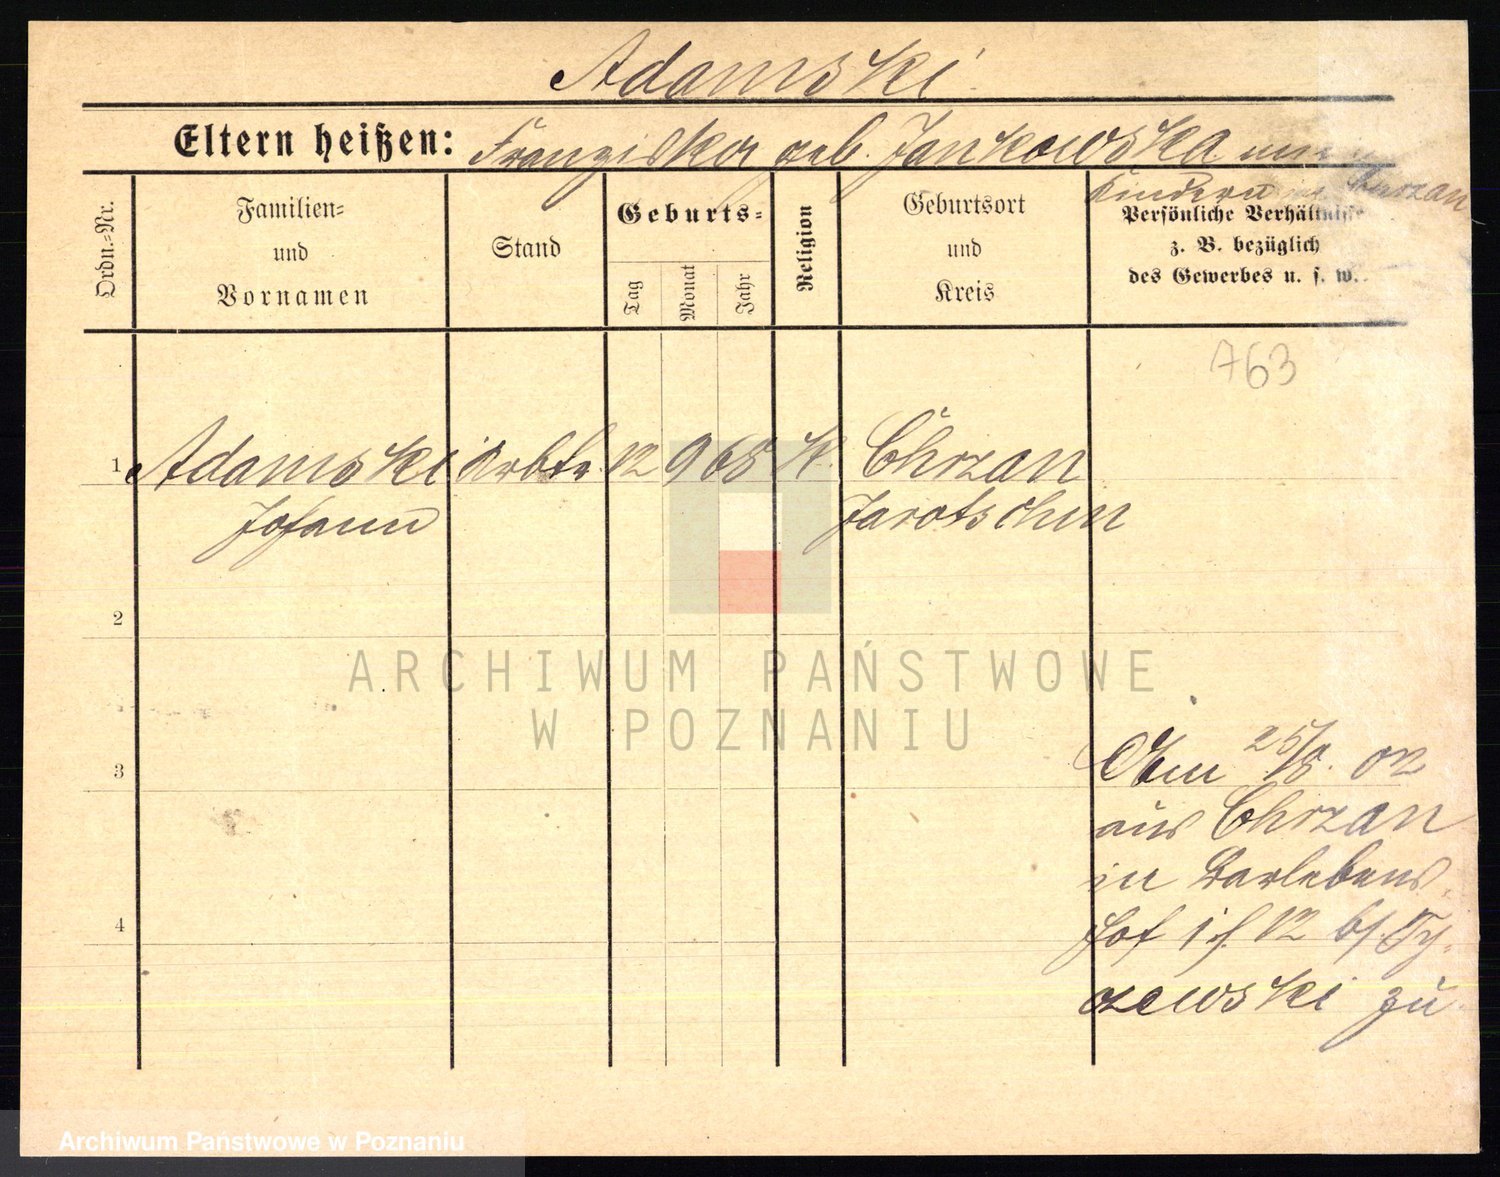 Adamski
Eltern heißen: Franziska geb. Jankowska mit
Kindern in Chrzan
Ordn.=Nr.
Familien=
und
Vornamen
Stand
Geburts=
Tag
Monat
Jahr
Religion
Geburtsort
und
Kreis
Persönliche Verhältnisse
z. B. bezüglich
des Gewerbes u. s. w.
763
1 Adamski Arbtr. 12 9 68 K. Chrzan
Johann Jarotschin
2
ARCHIWUM PAŃSTWOWE
W POZNANIU
Am 25/8. 02
3
aus Chrzan
in Darlebens
hof 12 b/
4
zewski zu
Archiwum Państwowe w Poznaniu